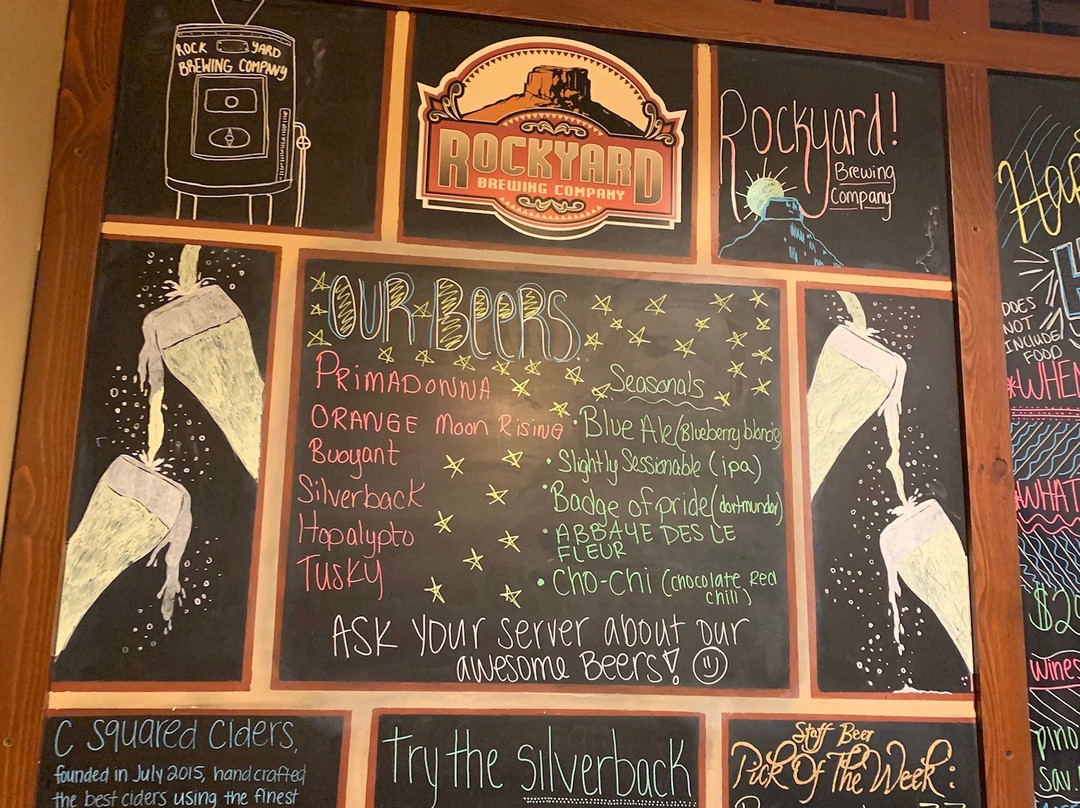 ROCK YARD
BREWING COMPANY
ROCKYARD
BREWING COMPANY
Rockyard!
Brewing
Company
OUR BEERS
PRIMADONNA
ORANGE Moon Rising
Buoyant
Silverback
Hopalypto
TUSKY
Seasonals
• Blue Ale (Blueberry blonde)
• Slightly Sessionable (ipa)
• Badge of pride (dortmunder)
• ABBAYE DES LE
FLEUR
• Cho-Chi (chocolate, Red
chili)
ASK YOUR server about our
awesome Beers!
C Squared Ciders,
founded in July 2015, handcrafted
the best ciders using the finest
Try the silverback
Staff Beer
Pick Of The Week:
DOES
NOT
INCLUDE
FOOD
*WHEN
WHAT
wines
pino
sav.